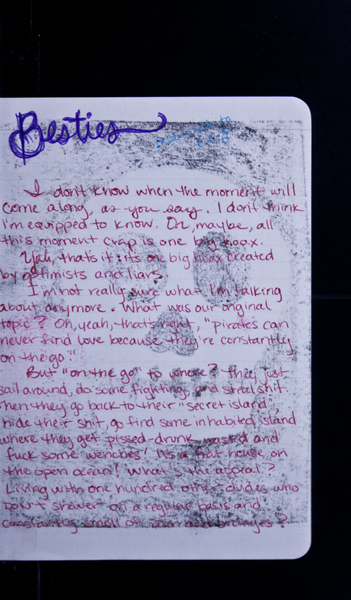 Besties
I don't know when the moment will
come along, as you say. I don't think
I'm equipped to know. Or, maybe, all
this moment crap is one big hoax.
Yah, that's it: its one big hoax created
by optimists and liars.
I'm not really sure what I'm talking
about anymore. What was our original
topic? Oh, yeah, that's right, "Pirates can
never find love because they're constantly
on the go."
But "on the go" to where? They just
sail around, do some fighting, and steal shit.
Then they go back to their "secret island,"
hide their shit, go find some inhabited island
where they get pissed-drunk wasted and
fuck some wenches! Its a frat house on
the open ocean! What's the appeal?
Living with one hundred other dudes who
don't shower on a regular basis and
constantly smell of